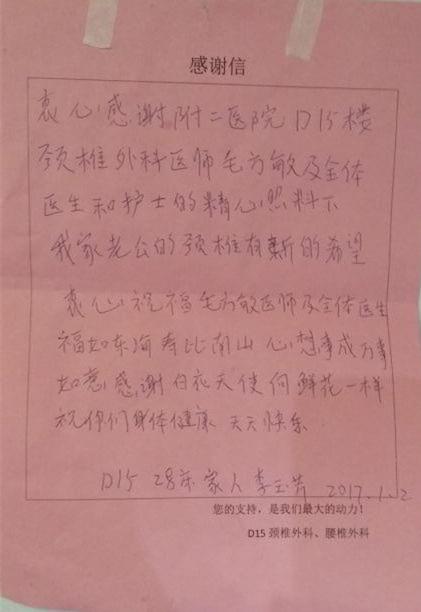 感谢信
衷心感谢附二医院D15楼
颈椎外科医师毛方敏及全体
医生和护士的精心照料下
我家老公的颈椎有新的希望
衷心祝福毛方敏医师及全体医生
福如东海寿比南山心想事成万事
如意感谢白衣天使何鲜花一样
祝你们身体健康天天快乐
D15 28床家人李玉芳 2017.1.2
您的支持，是我们最大的动力！
D15颈椎外科、腰椎外科